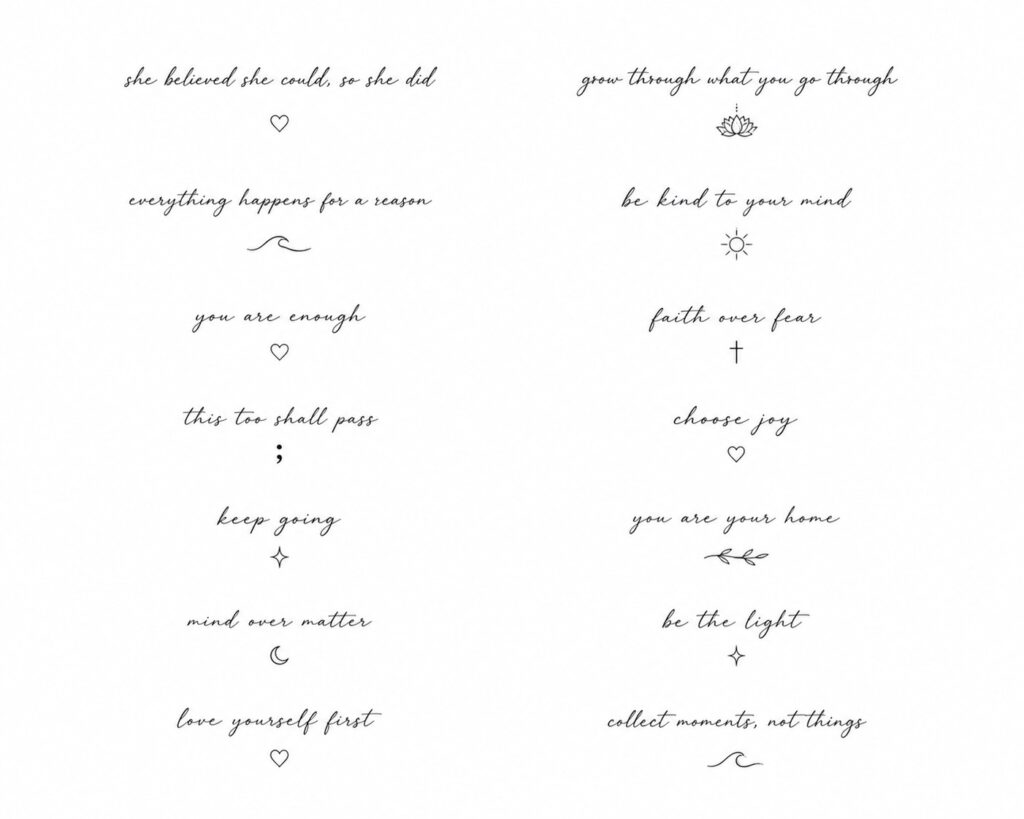 she believed she could, so she did
everything happens for a reason
you are enough
this too shall pass
;
keep going
mind over matter
love yourself first
grow through what you go through
be kind to your mind
faith over fear
choose joy
you are your home
be the light
collect moments, not things